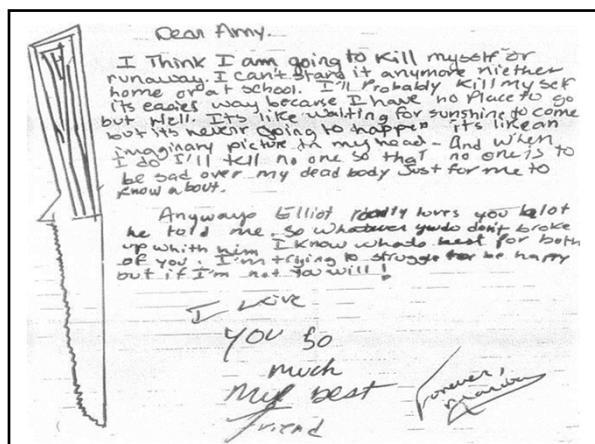 Dear Amy.
I Think I am going to Kill myself or
runaway. I can't stand it anymore niether
home or at school. I'll Probably Kill my self
its easier way because I have no Place to go
but Hell. Its like waiting for sunshine to come
but its never going to happen its like an
imaginary picture in my head. And when
I do I'll tell no one so that no one is to
be sad over my dead body Just for me to
know about.
Anyways Elliot really loves you alot
he told me. So whatever you do don't broke
up whith him I know whads best for both
of you. I'm trying to struggle to be happy
but if I'm not You will!
I love
you so
much
My best
Friend
Forever,